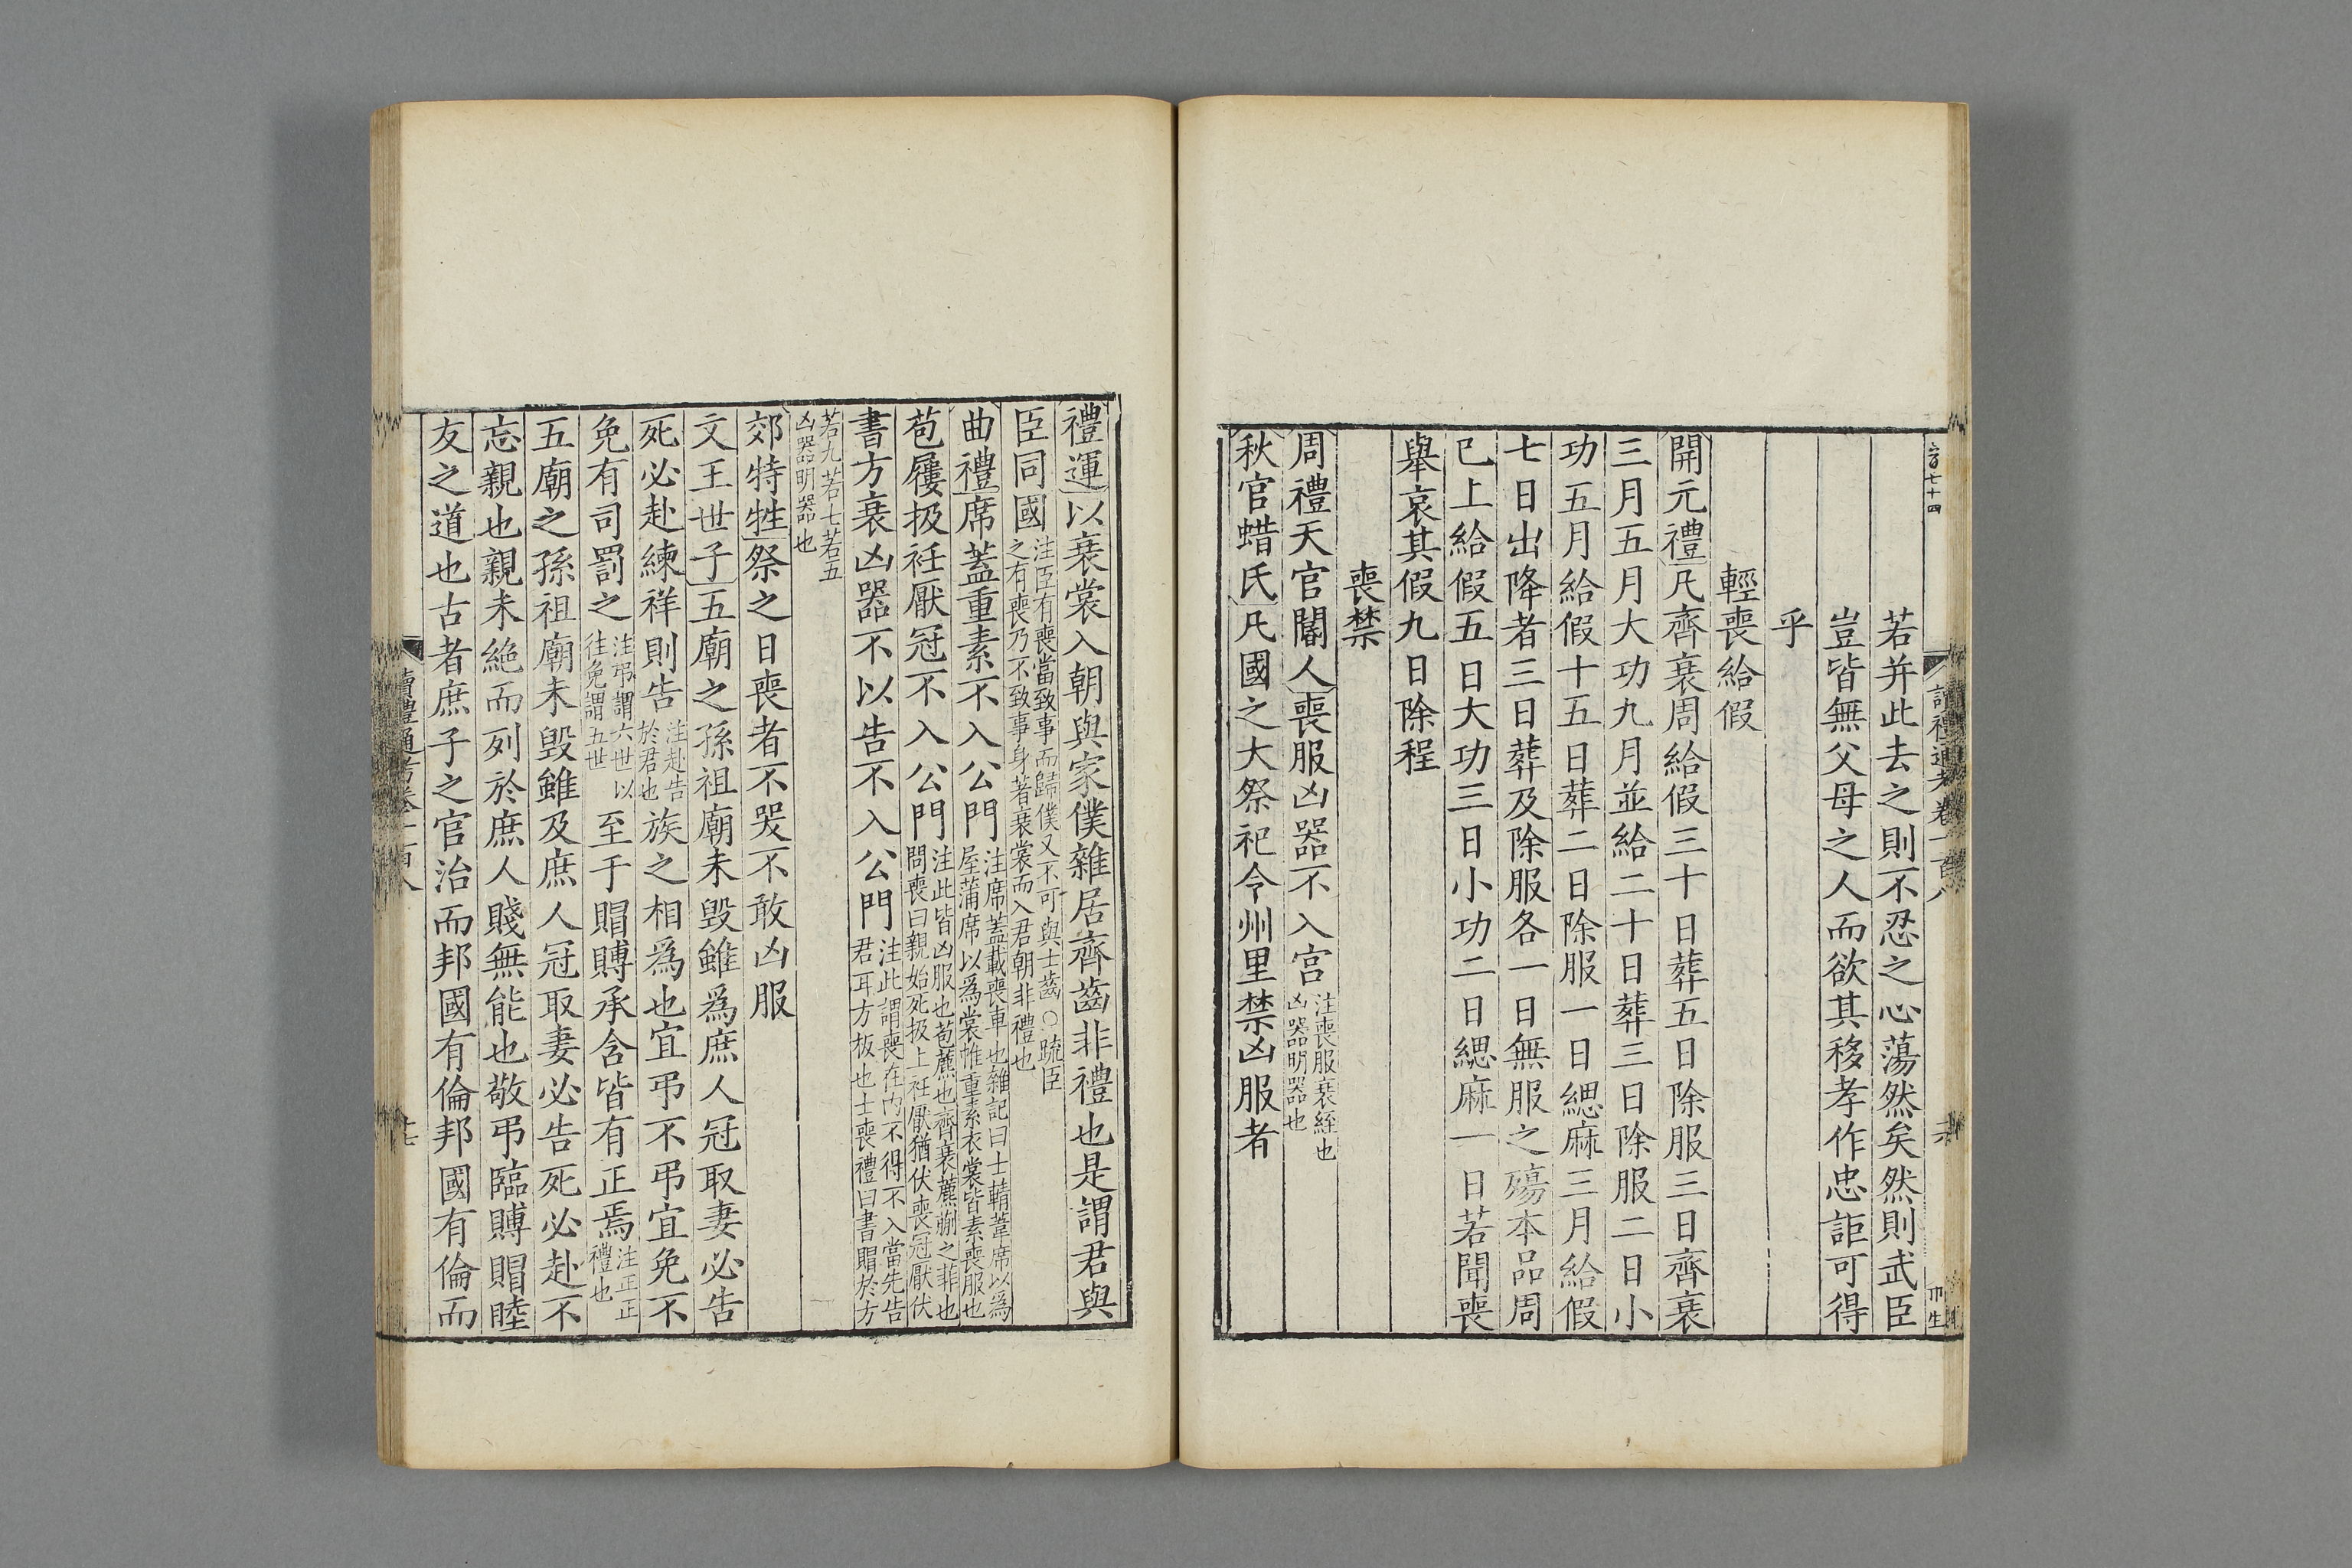 若并此去之則不忍之心蕩然矣然則武臣
豈皆無父母之人而欲其移孝作忠詎可得
乎
輕喪給假
開元禮凡齊衰周給假三十日葬五日除服三日齊衰
三月五月大功九月並給二十日葬三日除服二日小
功五月給假十五日葬二日除服一日緦麻三月給假
七日出降者三日葬及除服各一日無服之殤本品周
已上給假五日大功三日小功二日緦麻一日若聞喪
舉哀其假九日除程
喪禁
周禮天官閽人喪服凶器不入宮注喪服衰絰也凶器明器也
秋官蜡氏凡國之大祭祀令州里禁凶服者
禮運以衰裳入朝與家僕雜居齊齒非禮也是謂君與
臣同國注臣有喪當致事而歸僕又不可與士齒○疏臣之有喪乃不致事身著衰裳而入君朝非禮也
曲禮席蓋重素不入公門注席蓋載喪車也雜記曰士輤葦席以為屋蒲席以為裳帷重素衣裳皆素喪服也
苞屨扱衽厭冠不入公門注此皆凶服也苞藨也齊衰藨蒯之菲也問喪曰親始死扱上衽厭猶伏喪冠厭伏
書方衰凶器不以告不入公門注此謂喪在內不得不入當先告君耳方板也士喪禮曰書賵於方
若九若七若五凶器明器也
郊特牲祭之日喪者不哭不敢凶服
文王世子五廟之孫祖廟未毀雖爲庶人冠取妻必告
死必赴練祥則告注赴告於君也族之相爲也宜弔不弔宜免不
免有司罰之注弔謂六世以往免謂五世至于賵賻承含皆有正焉注正正禮也
五廟之孫祖廟未毀雖及庶人冠取妻必告死必赴不
忘親也親未絶而列於庶人賤無能也敬弔臨賻賵睦
友之道也古者庶子之官治而邦國有倫邦國有倫而
讀禮通考卷一百八